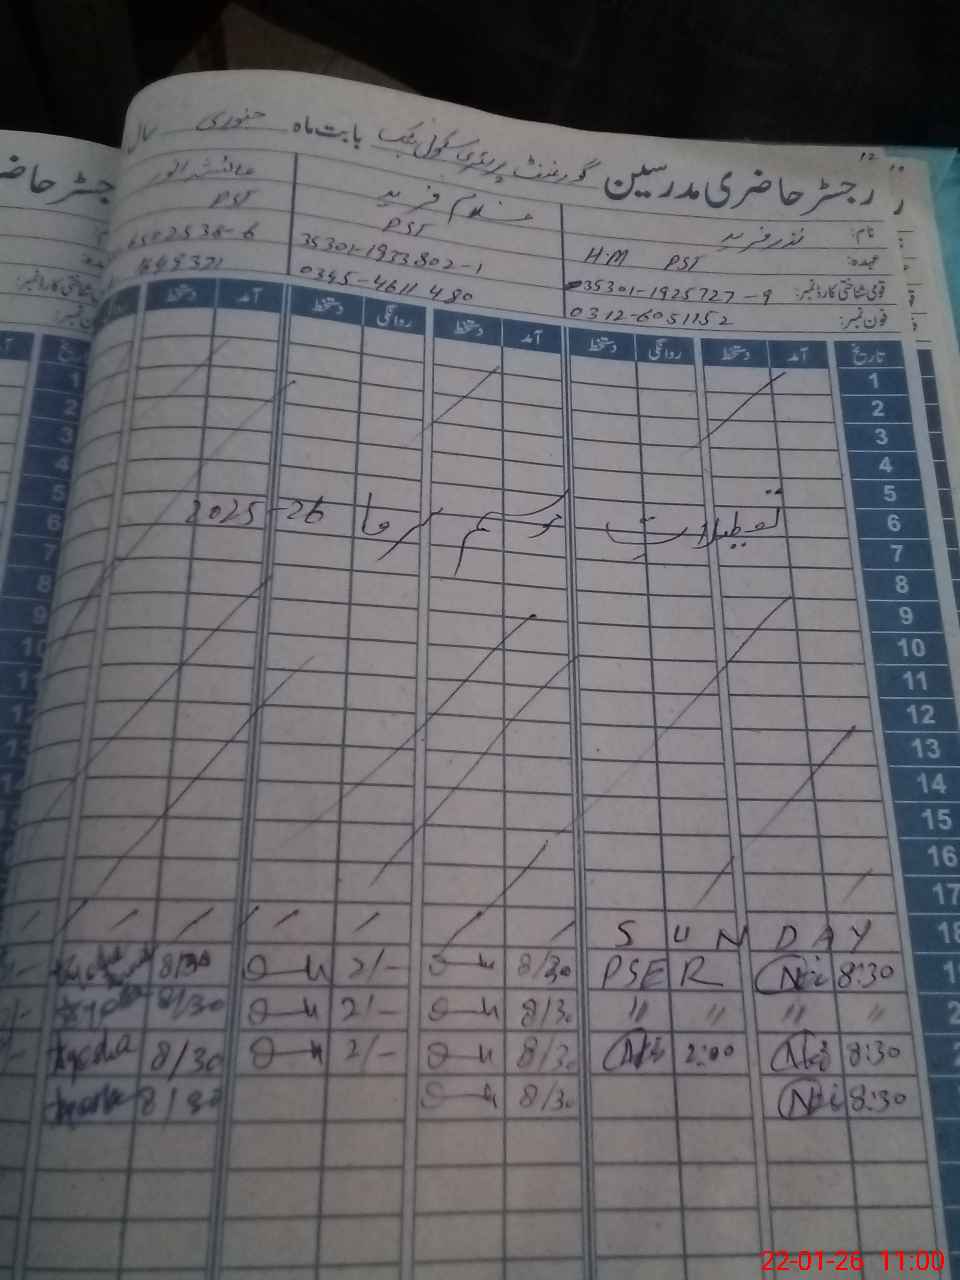 رجسٹر حاضری مدرسین گورنمنٹ پرائمری سکول بابت ماہ جنوری سال
نام: نذر فرید
غلام فرید
عائشہ انور
عہدہ: HM PST
PST
PST
قومی شناختی کارڈ نمبر: 35301-1925727-9
35301-1933802-1
فون نمبر: 0312-6051152
0345-4611480
تاریخ آمد دستخط روانگی دستخط آمد دستخط روانگی دستخط آمد دستخط
1
2
3
4
5
6 تعطیلات موسم سرما 2025-26
7
8
9
10
11
12
13
14
15
16
17
18 SUNDAY
8:30 PSER 8/30 2/- 8/30
" " " " 8/30 2/- 8/30
8:30 2:00 8/30 2/- 8/30
8:30 8/30 8/30
22-01-26 11:00